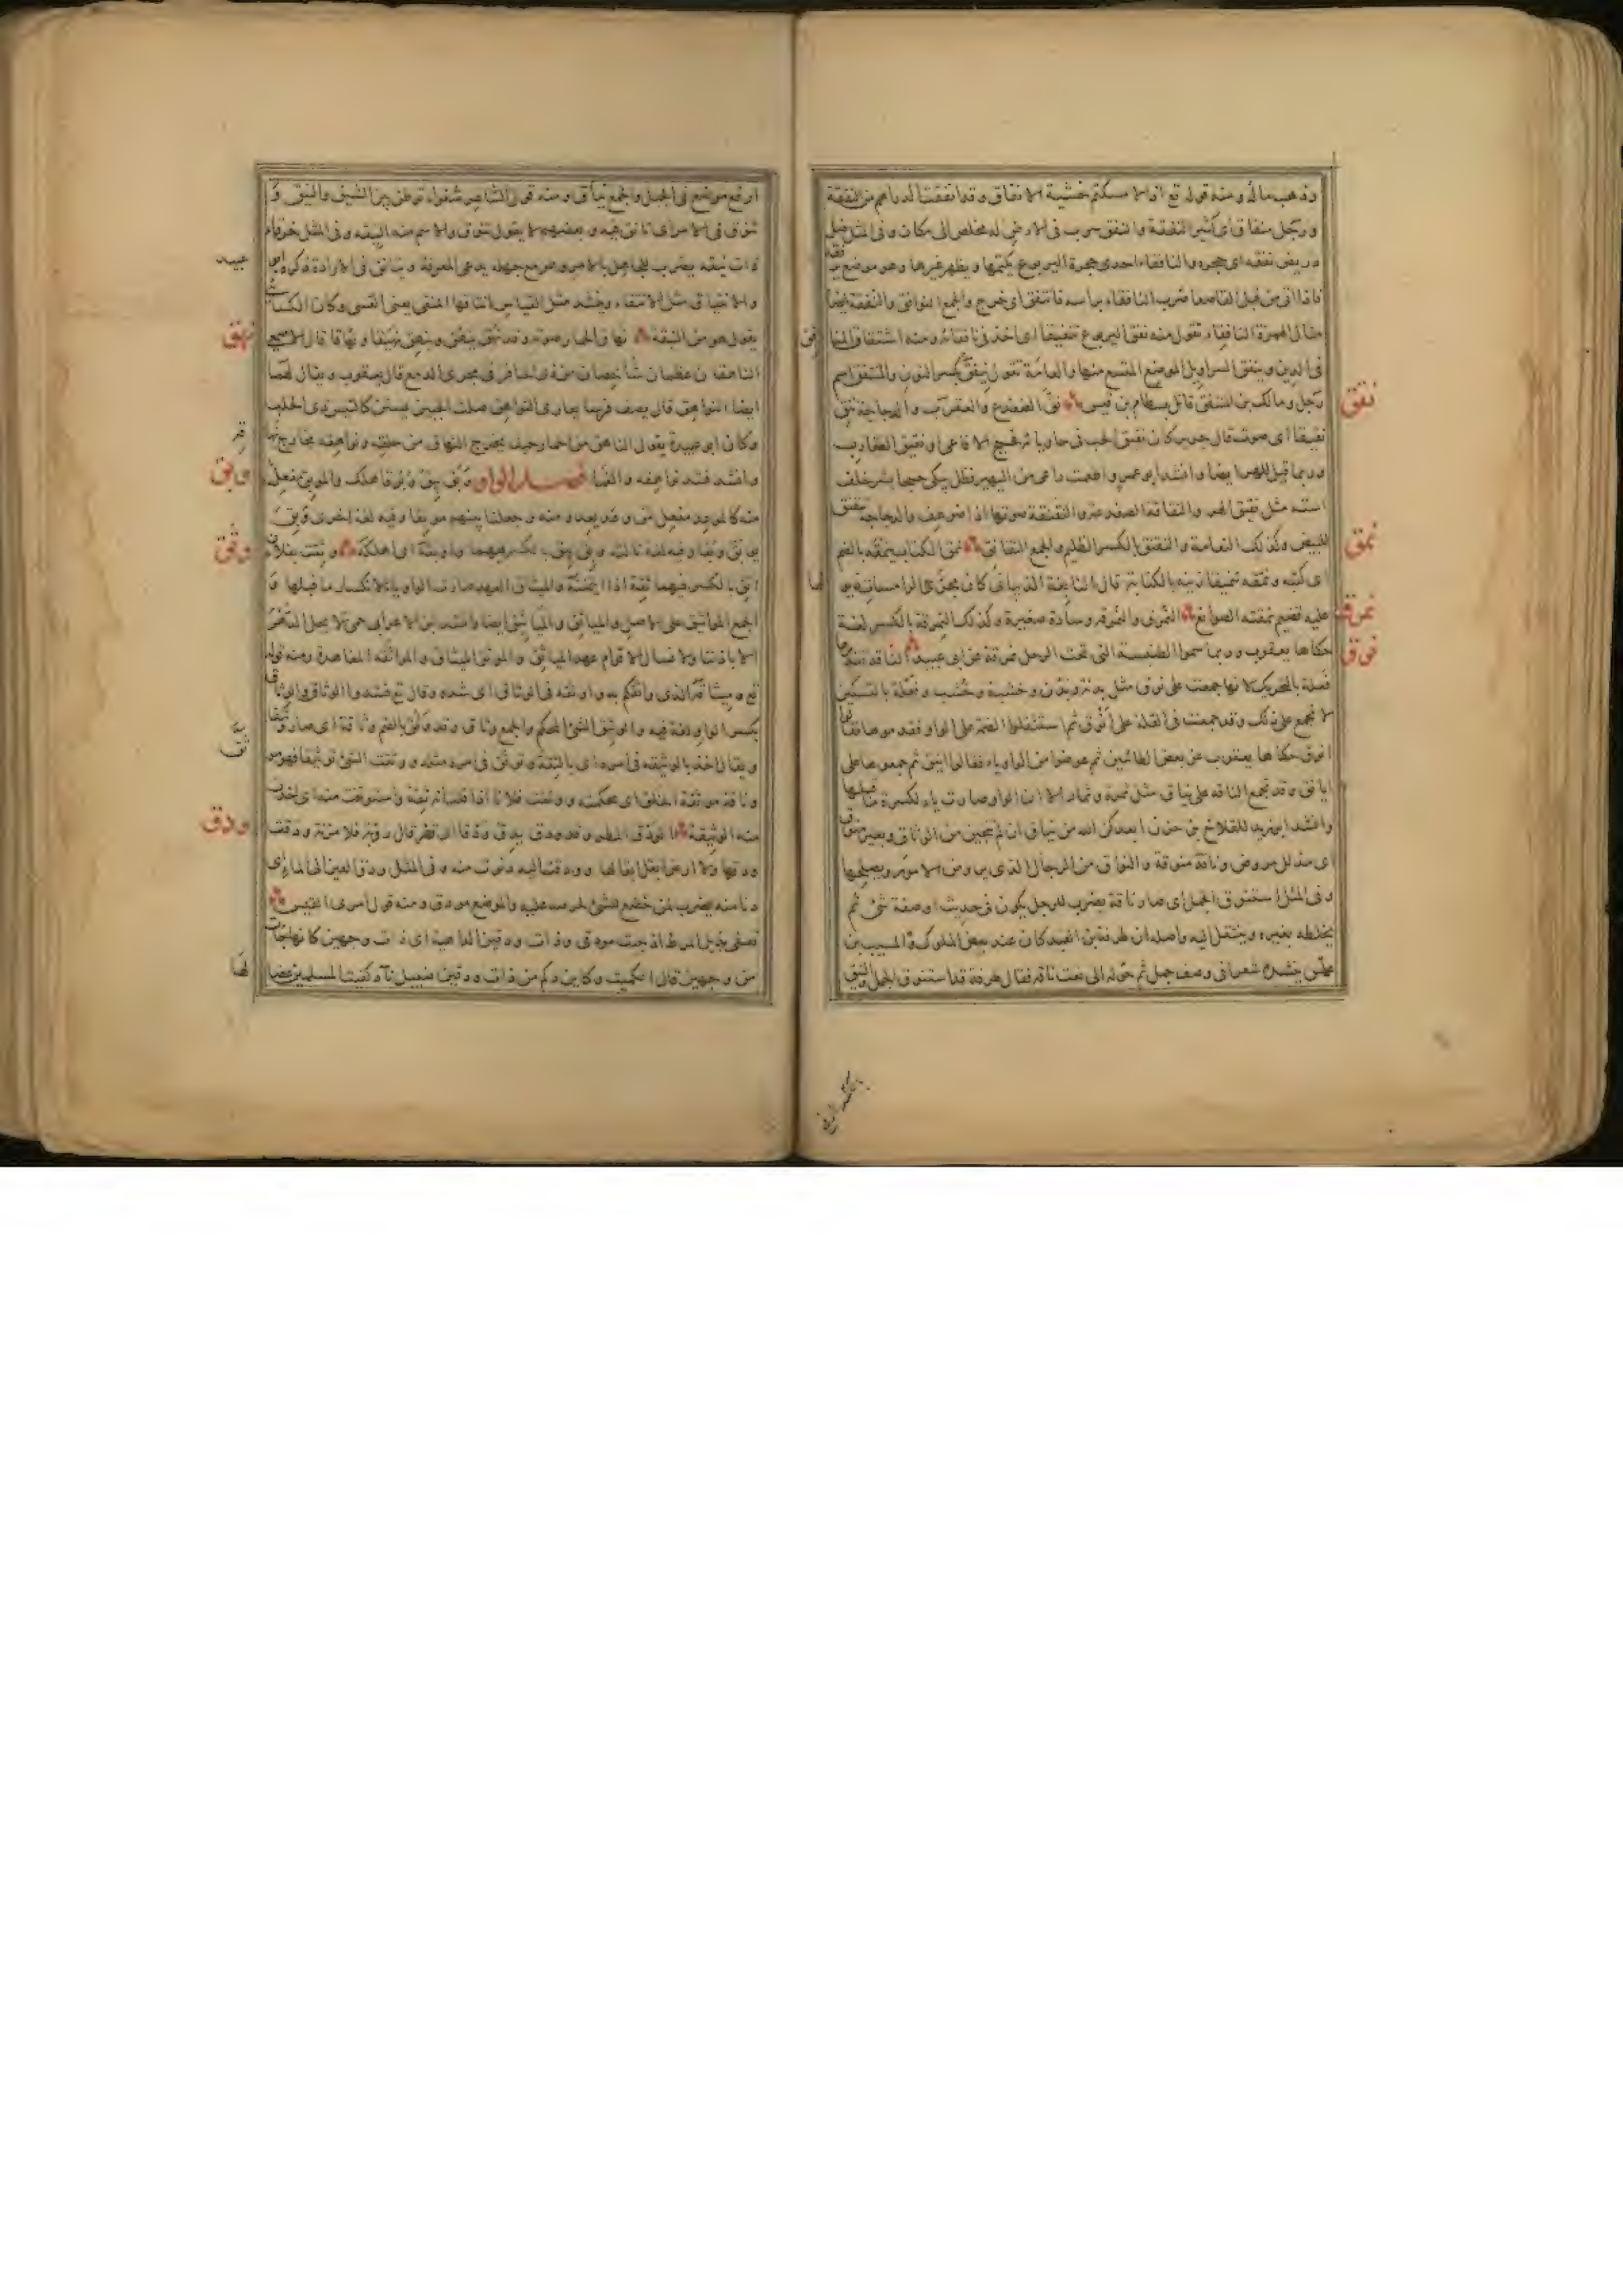 وذهب ماله ومنه قوله تع اذا لامسكتم خشية الانفاق وقد انفقت الدراهم من النفقة
ورجل منفاق اى كثير النفقة والنفق سرب فى الارض له مخلص الى مكان وفى المثل ضل
دريص نفقه اى جحره والنافقاء احدى جحرة اليربوع يكتمها ويظهر غيرها وهو موضع يرققه
فاذا اتى من قبل القاصعا ضرب النافقاء براسه فانتفق اى خرج والجمع النوافق والنفقة ايضا
مثال الهمزة النافقاء تقول منه نفق اليربوع تنفيقا اى اخذ فى نافقائه ومنه اشتقاق المنافق
فى الدين ونيفق السراويل الموضع المتسع منها والعامة تقول نيفق بكسر النون والمنتفق اسم
نقق
رجل ومالك بن المنتفق قاتل بسطام بن قيس نق الضفدع والعقرب والدجاجة تنق
نقيقا اى صوت قال جرير كان نقيق الحب فى حاويائه فحيح الافاعى او نقيق العقارب
وربما قيل للهر ايضا وانشد ابو عمرو
استه مثل نقيق الهر والنقاقة الضفدعة والنقنقة صوتها اذا ضوعف والدجاجة تنقنق
نمق
للبيض وكذلك النعامة والنقنق بالكسر الظليم والجمع النقانق نمق الكتاب ينمقه بالضم
اى كتبه ونمقه تنميقا زينه بالكتابة قال النابغة الذبيانى كان مجر الرامسات ذيولها
نمرق
عليه قضيم نمقته الصوانع النمرق والنمرقة وسادة صغيرة وكذلك النمرقة بالكسر لغة
نوق
حكاها يعقوب وربما سموا الطنفسة التى تحت الرحل نمرقة عن ابى عبيد الناقة تقديرها
فعلة بالتحريك لانها جمعت على نوق مثل بدنة وبدن وخشبة وخشب وفعلة بالتسكين
لا تجمع على ذلك وقد جمعت فى القلة على انوق ثم استثقلوا الضمة على الواو فقدموها فقالوا
اونق حكاها يعقوب عن بعض الطائيين ثم عوضوا من الواو ياء فقالوا اينق ثم جمعوها على
ايانق وقد تجمع الناقة على نياق مثل ثمرة وثمار الا ان الواو صارت ياء لكسرة ما قبلها
وانشد ابو زيد للقلاخ بن حزن ابعدكن الله من نياق ان لم تنجين من الوثاق وبعير منوق
اى مذلل مروض وناقة منوقة والنواق من الرجال الذى يروض الامور ويصلحها
وفى المثل استنوق الجمل اى صار ناقة يضرب للرجل يكون فى حديث او صفة شئ ثم
يخلطه بغيره وينتقل اليه واصله ان طرفة بن العبد كان عند بعض الملوك والمسيب بن
علس ينشده شعرا فى وصف جمل ثم حوله الى نعت ناقة فقال طرفة قد استنوق الجمل والنيق
ارفع موضع فى الجبل والجمع نياق ومنه قول الشاعر شغواء توطن بين الشيق والنيق و
تنوق فى الامر اى تانق فيه وبعضهم لا يقول تنوق والاسم منه النيقة وفى المثل خرقاء
ذات نيقة يضرب للجاهل بالامر وهو مع جهله يدعى المعرفة ويتانق فى الارادة ذكره ابو
عبيد
والانتياق مثل الانتقاء وينشد مثل القياس انتاقها المنقى يعنى القسى وكان الكسائى
نهق
يقول هو من النيقة نهاق الحمار صوته وقد نهق ينهق وينهق نهيقا ونهاقا قال الاصمعى
الناهقان عظمان شاخصان من ذى الحافر فى مجرى الدمع قال يعقوب ويقال لهما
ايضا النواهق قال يصف فرسا بعارى النواهق صلت الجبين يستن كالتيس ذى الحلب
وكان ابو عبيدة يقول الناهق من الحمار حيث يخرج النهاق من حلقه ونواهقه مخارج نهاقه
وبق
وانشد للنمر فصل الواو وبق يبق وبوقا هلك والموبق مفعل
منه كالموعد مفعل من وعد يعد ومنه وجعلنا بينهم موبقا وفيه لغة اخرى وبق
وثق
يوبق وبقا وفيه لغة ثالثة وبق يبق بالكسر فيهما واوبقه اى اهلكه وثقت بفلان
اثق بالكسر فيهما ثقة اذا ائتمنته والميثاق العهد صارت الواو ياء لانكسار ما قبلها و
الجمع المواثيق على الاصل والمياثق والمياثيق ايضا وانشد ابن الاعرابى حمى لا يحل الدهر
الا باذننا ولا نسال الاقوام عهد المياثق والموثق الميثاق والمواثقة المعاهدة ومنه قوله
تع وميثاقه الذى واثقكم به واوثقه فى الوثاق اى شده وقال تع فشدوا الوثاق والوثاق
بكسر الواو لغة فيه والوثيق الشئ المحكم والجمع وثاق وقد وثق بالضم وثاقة اى صار وثيقا
ويقال اخذ بالوثيقة فى امره اى بالثقة وتوثق فى امره مثله ووثقت الشئ توثيقا فهو موثق
وناقة موثقة الخلق اى محكمته ووثقت فلانا اذا قلت انه ثقة واستوثقت منه اى اخذت
ودق
منه الوثيقة الودق المطر وقد ودق يدق ودقا اى قطر قال فلا مزنة ودقت
ودقها ولا ارض ابقل ابقالها وودقت اليه دنوت منه وفى المثل ودق العير الى الماء اى
دنا منه يضرب لمن خضع للشئ لحرصه عليه والموضع مودق ومنه قول امرئ القيس
تعفى بذيل المرط اذ جئت مودقى وذات ودقين الداهية اى ذات وجهين كانها جاءت
من وجهين قال الكميت وكائن وكم من ذات ودقين ضئبل نآد كفيت المسلمين عضالها